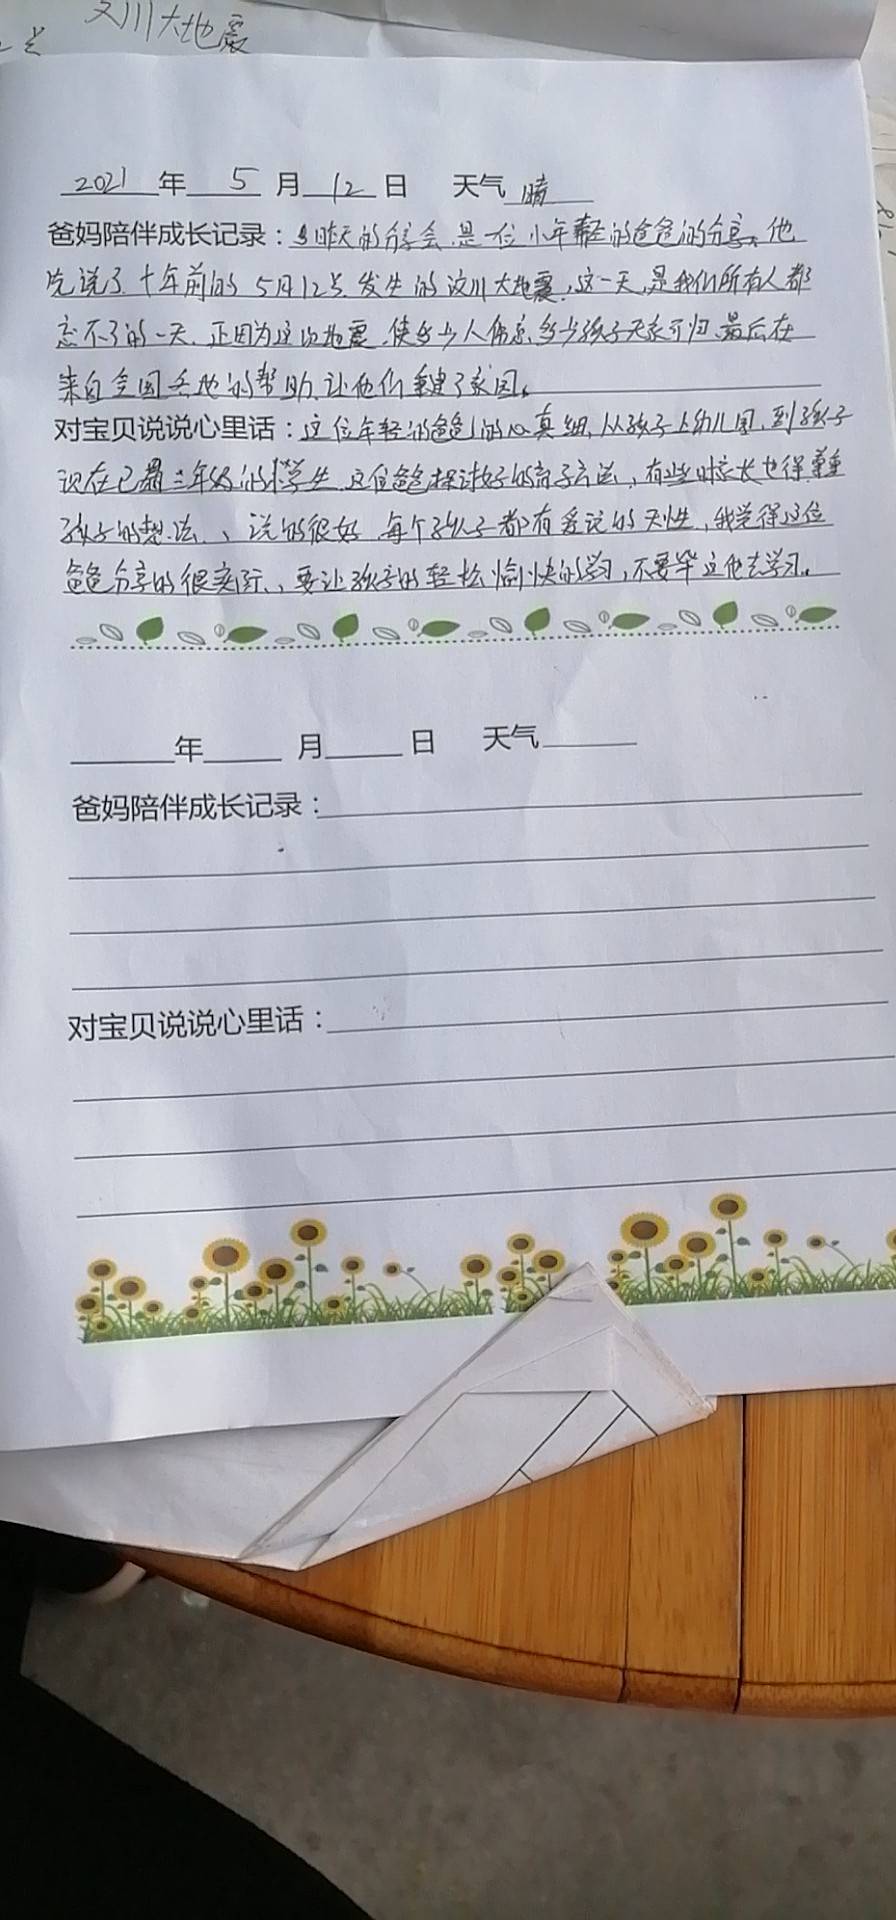 汶川大地震
2021年5月12日 天气 晴
爸妈陪伴成长记录：昨天的分享会,是一位小年轻的爸爸的分享,他
先说了十年前的5月12号.发生的汶川大地震,这一天,是我们所有人都
忘不了的一天.正因为这次地震,使多少人伤亡,多少孩子无家可归.最后在
来自全国各地的帮助,让他们重建了家园。
对宝贝说说心里话：这位年轻的爸爸的心真细,从孩子上幼儿园,到孩子
现在已是三年级的小学生.这位爸爸探讨好的育子方法,有些时家长也得尊重
孩子的想法、说的很好.每个孩子都有爱玩的天性,我觉得这位
爸爸分享的很实际、要让孩子的轻松愉快的学习,不要牵立他去学习。
年 月 日 天气
爸妈陪伴成长记录：
对宝贝说说心里话：